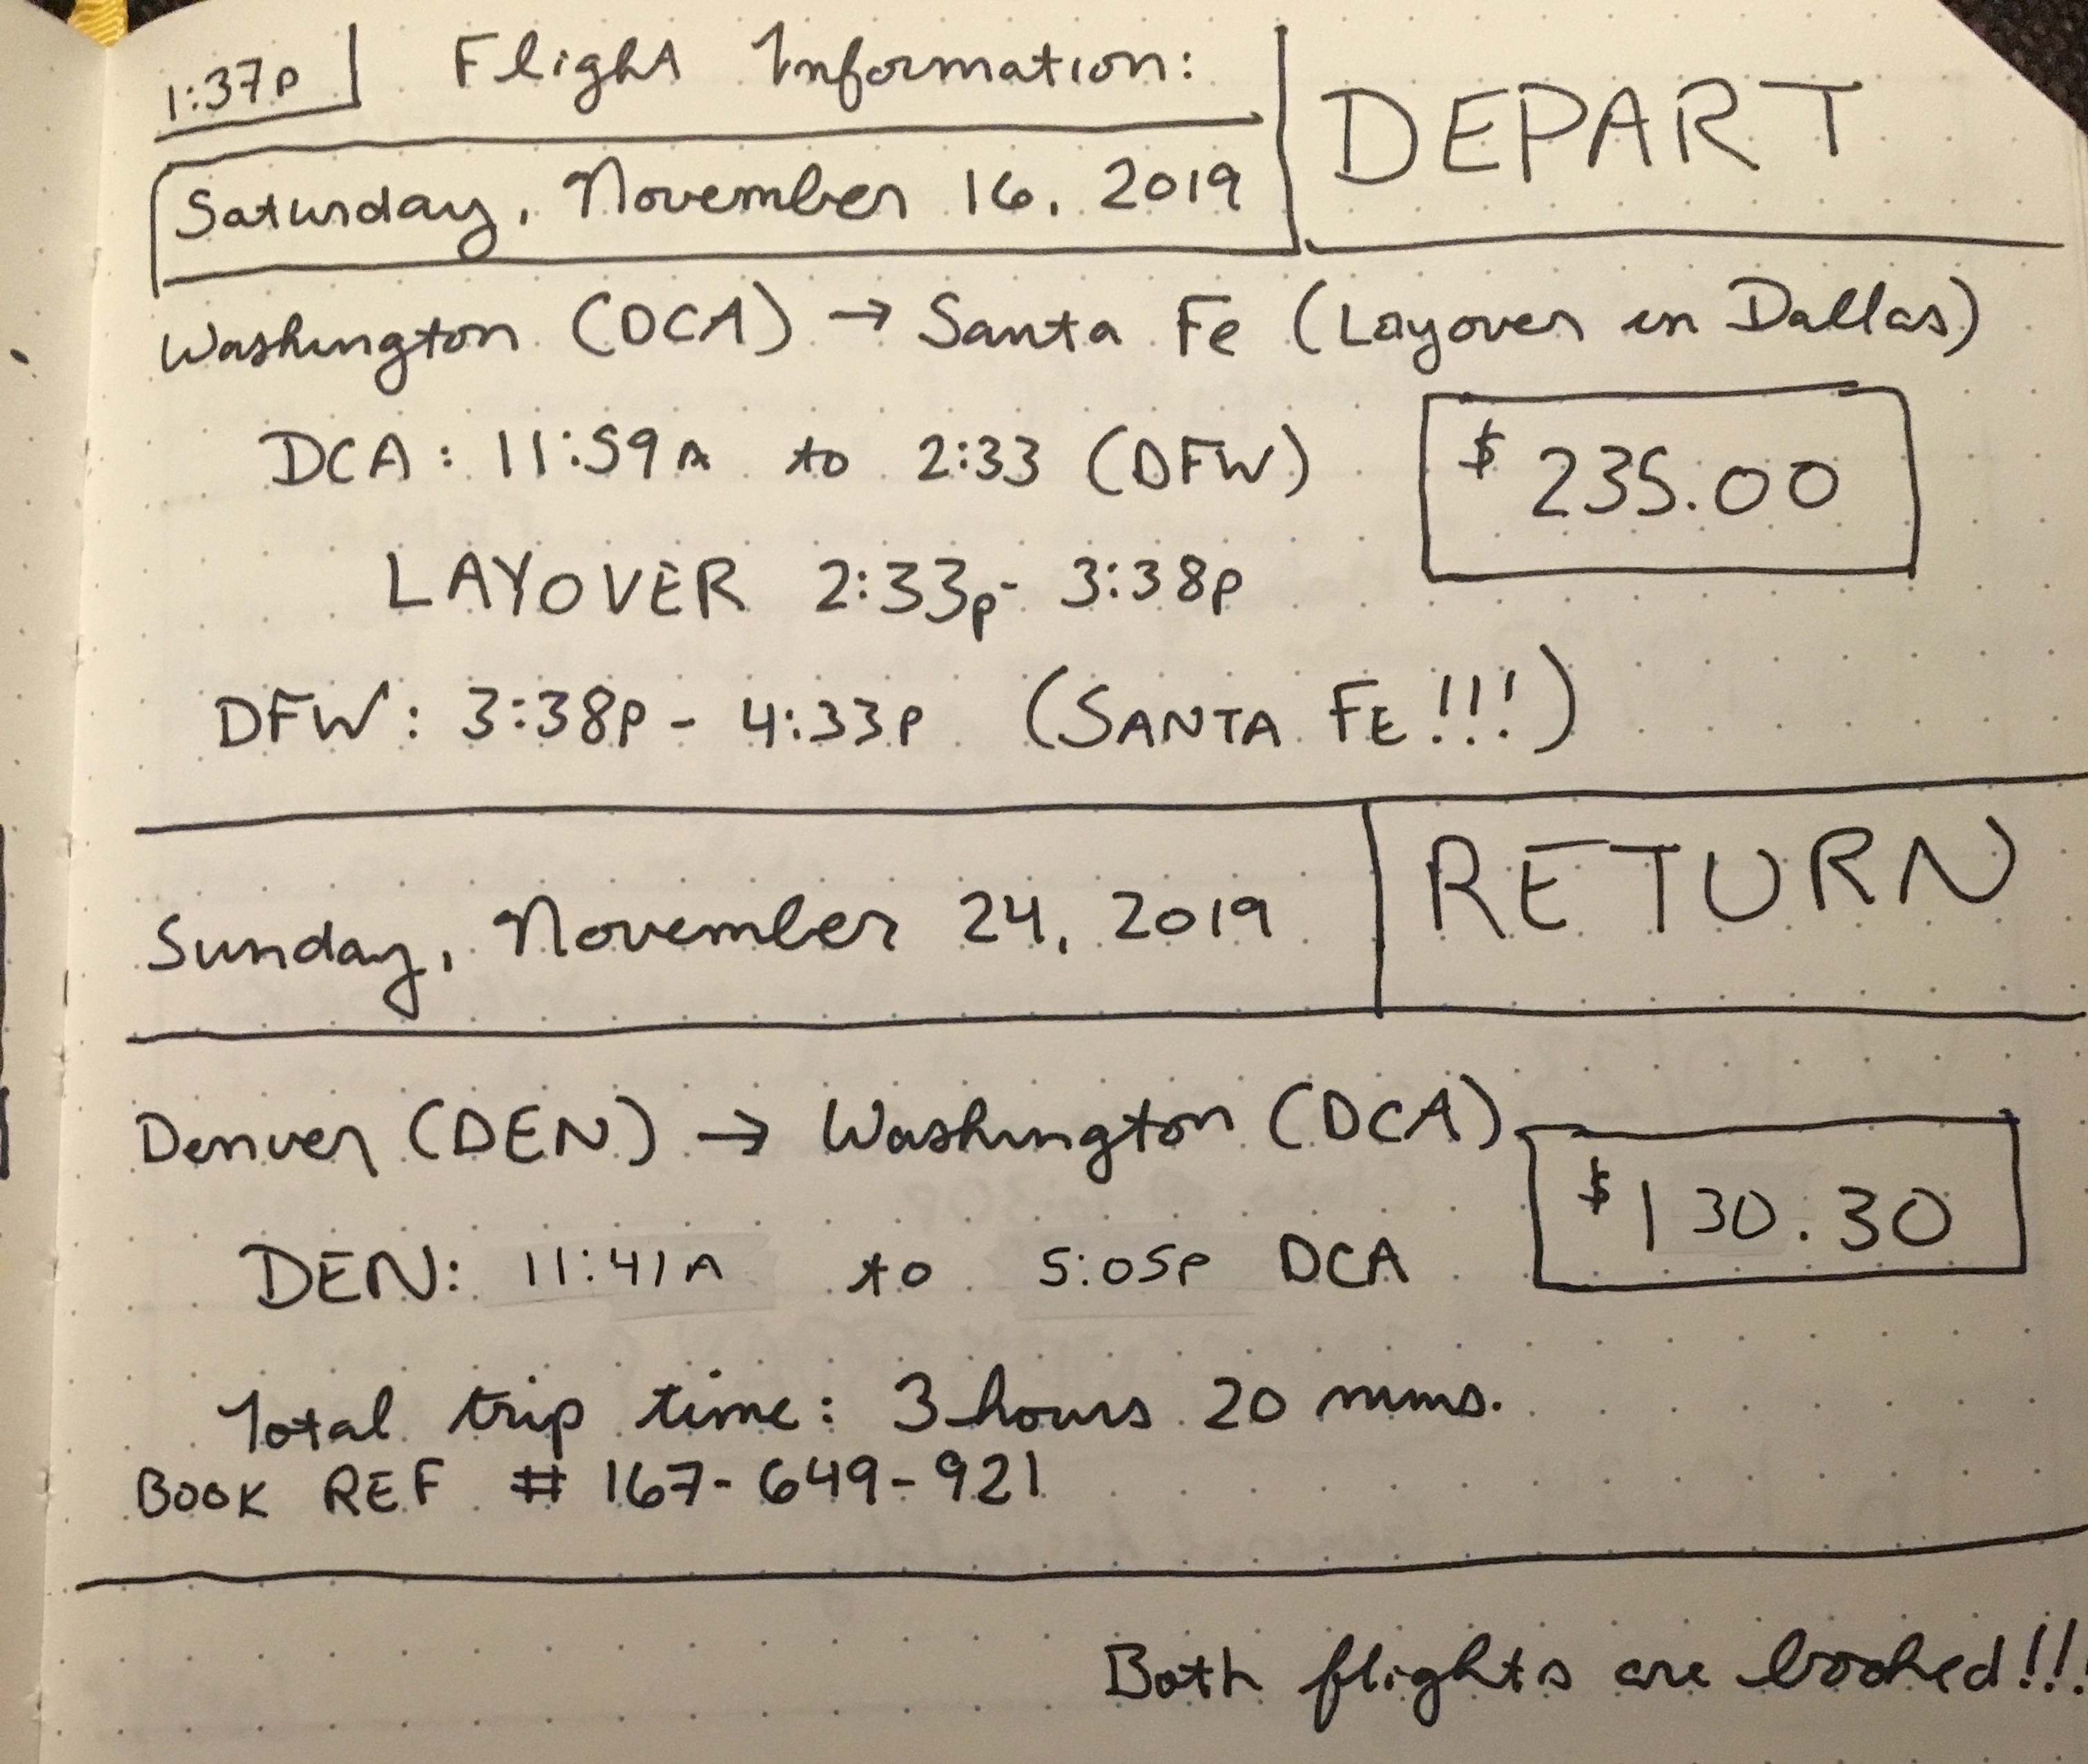 1:37p Flight Information:
DEPART
Saturday, November 16, 2019
Washington (DCA) → Santa Fe (Layover in Dallas)
DCA: 11:59A to 2:33 (DFW)
$235.00
LAYOVER 2:33p - 3:38p
DFW: 3:38p - 4:33p (SANTA FE!!!)
RETURN
Sunday, November 24, 2019
Denver (DEN) → Washington (DCA)
$130.30
DEN: 11:41A to 5:05p DCA
Total trip time: 3 hours 20 mins.
BOOK REF # 167-649-921
Both flights are booked!!!